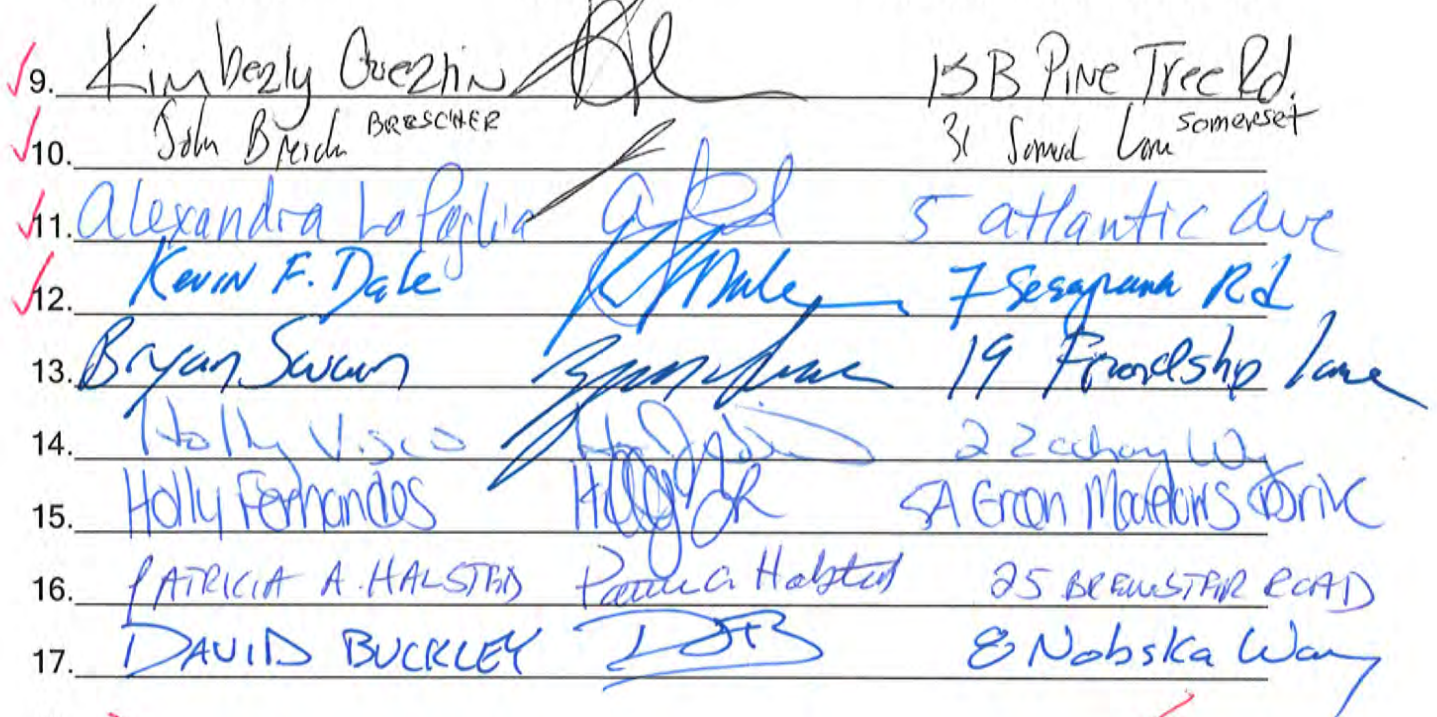 9. Kimberly Guezhin 15B Pine Tree Rd.
10. John BRESCHER 31 Lane Somerset
11. Alexandra LaPaglia 5 atlantic ave
12. Kevin F. Dale 7 Sesapana Rd
13. Bryan Swain 19 Friendship Lane
14. Holly Visco 2 Zachary Wy
15. Holly Fernandes 5A Green Meadows Drive
16. PATRICIA A. HALSTED Patricia Halsted 25 BREWSTER ROAD
17. DAVID BUCKLEY DB 8 Nobska Way